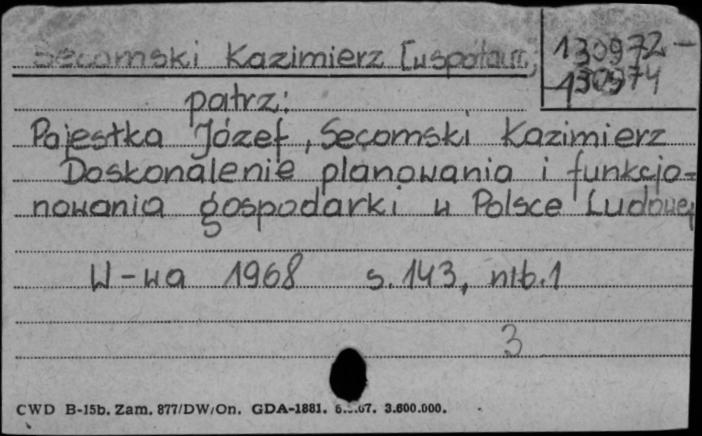 Secomski Kazimierz [współaut.]
130972-
130974
patrz:
Pajestka Józef, Secomski Kazimierz
Doskonalenie planowania i funkcjo-
nowania gospodarki w Polsce Ludowej
W-wa 1968 s. 143, nlb. 1
3
CWD B-15b. Zam. 877/DW/On. GDA-1881. 3.600.000.